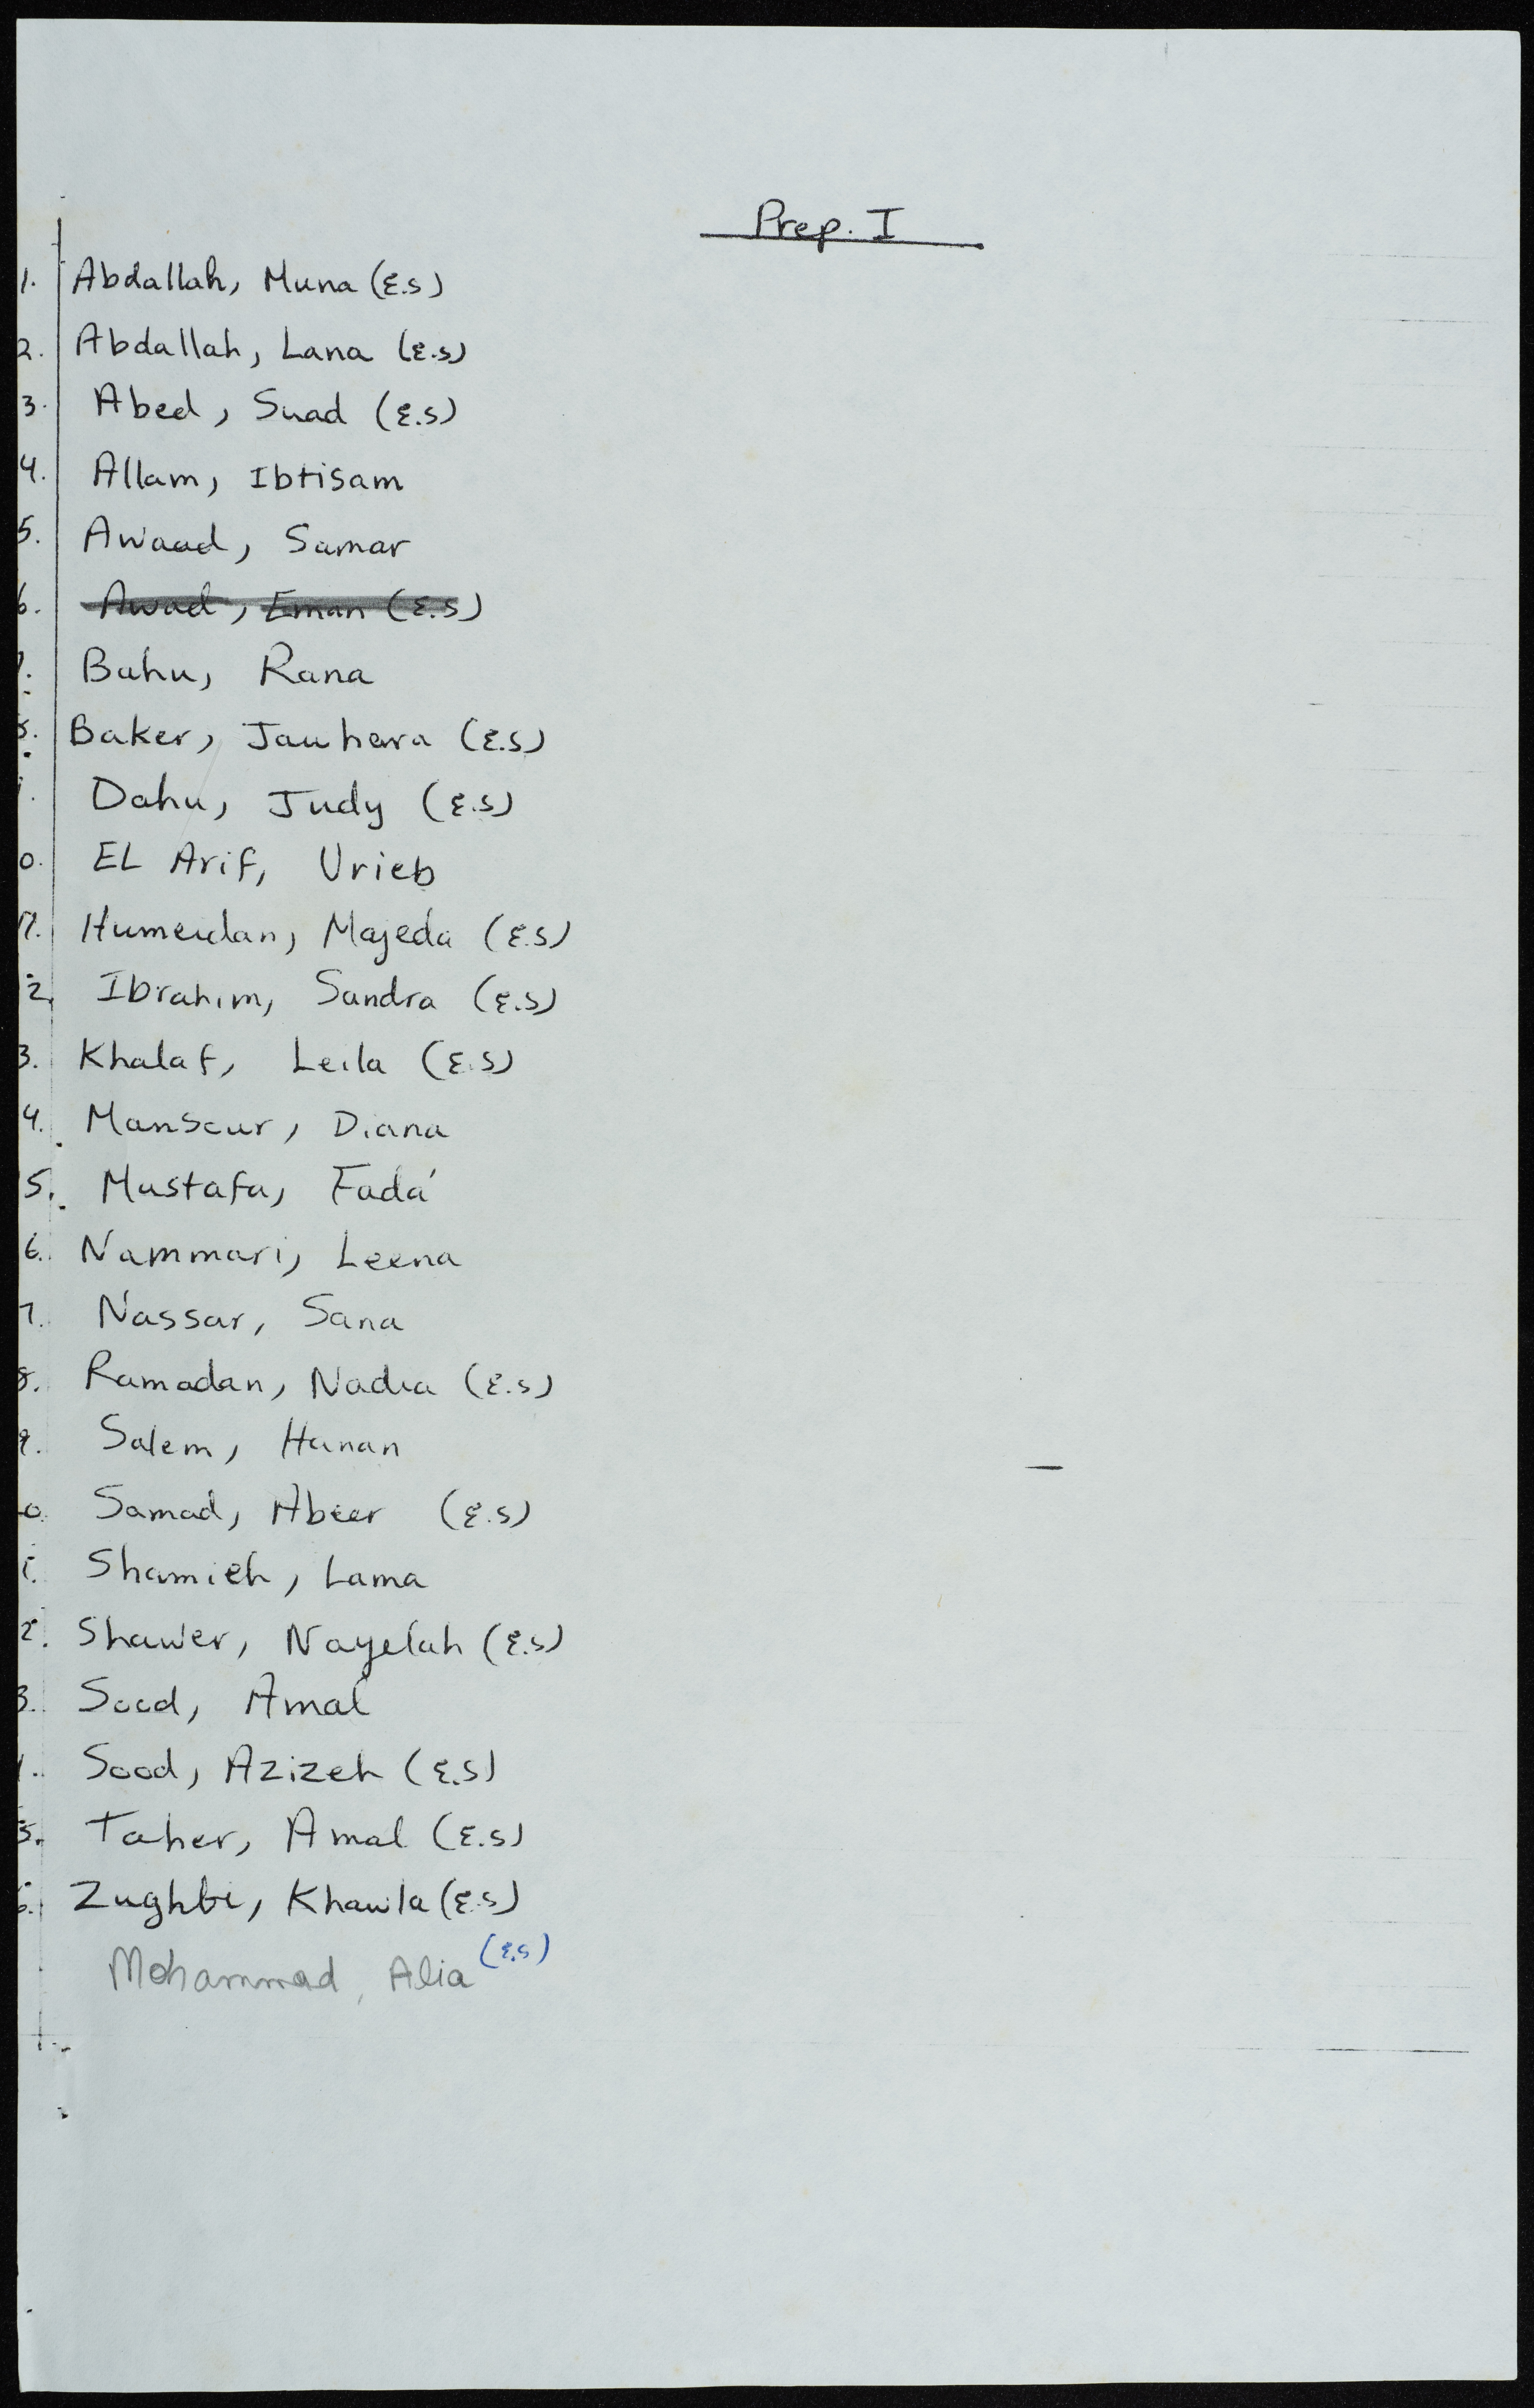 Prep. I
1. Abdallah, Muna (E.S)
2. Abdallah, Lana (E.S)
3. Abed, Suad (E.S)
4. Allam, Ibtisam
5. Awaad, Samar
6. Awad, Eman (E.S)
7. Bahu, Rana
8. Baker, Jauhara (E.S)
Dahu, Judy (E.S)
0. EL Arif, Urieb
11. Humeidan, Majeda (E.S)
2. Ibrahim, Sandra (E.S)
3. Khalaf, Leila (E.S)
4. Mansour, Diana
5. Mustafa, Fada'
6. Nammari, Leena
7. Nassar, Sana
8. Ramadan, Nadia (E.S)
9. Salem, Hanan
0. Samad, Abeer (E.S)
1. Shamieh, Lama
2. Shawer, Nayelah (E.S)
3. Sood, Amal
Sood, Azizeh (E.S)
5. Taher, Amal (E.S)
6. Zughbi, Khawla (E.S)
Mohammad, Alia (E.S)